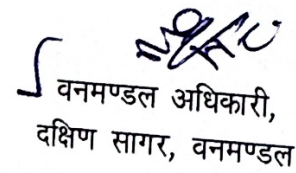 वनमण्डल अधिकारी,
दक्षिण सागर, वनमण्डल